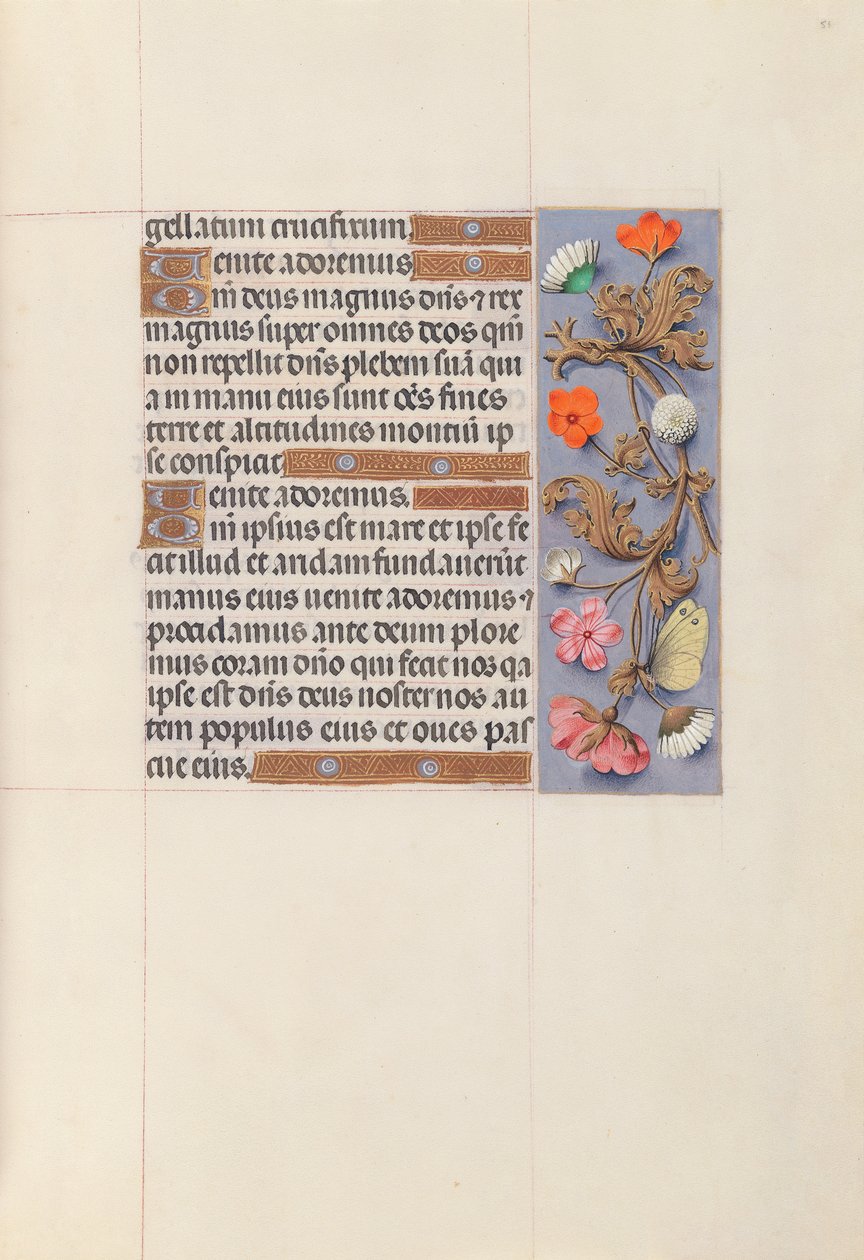 51
gellatum crucifixum.
Uenite adoremus
Qm̄ deus magnus dn̄s ⁊ rex
magnus super omnes deos qm̄
non repellit dn̄s plebem suā qui
a in manu eius sunt oēs fines
terre et altitudines montiū ip
se conspicit.
Uenite adoremus.
Qm̄ ipsius est mare et ipse fe
cit illud et aridam fundauerūt
manus eius uenite adoremus ⁊
procidamus ante deum plore
mus coram dn̄o qui fecit nos qa
ipse est dn̄s deus noster nos au
tem populus eius et oues pas
cue eius.